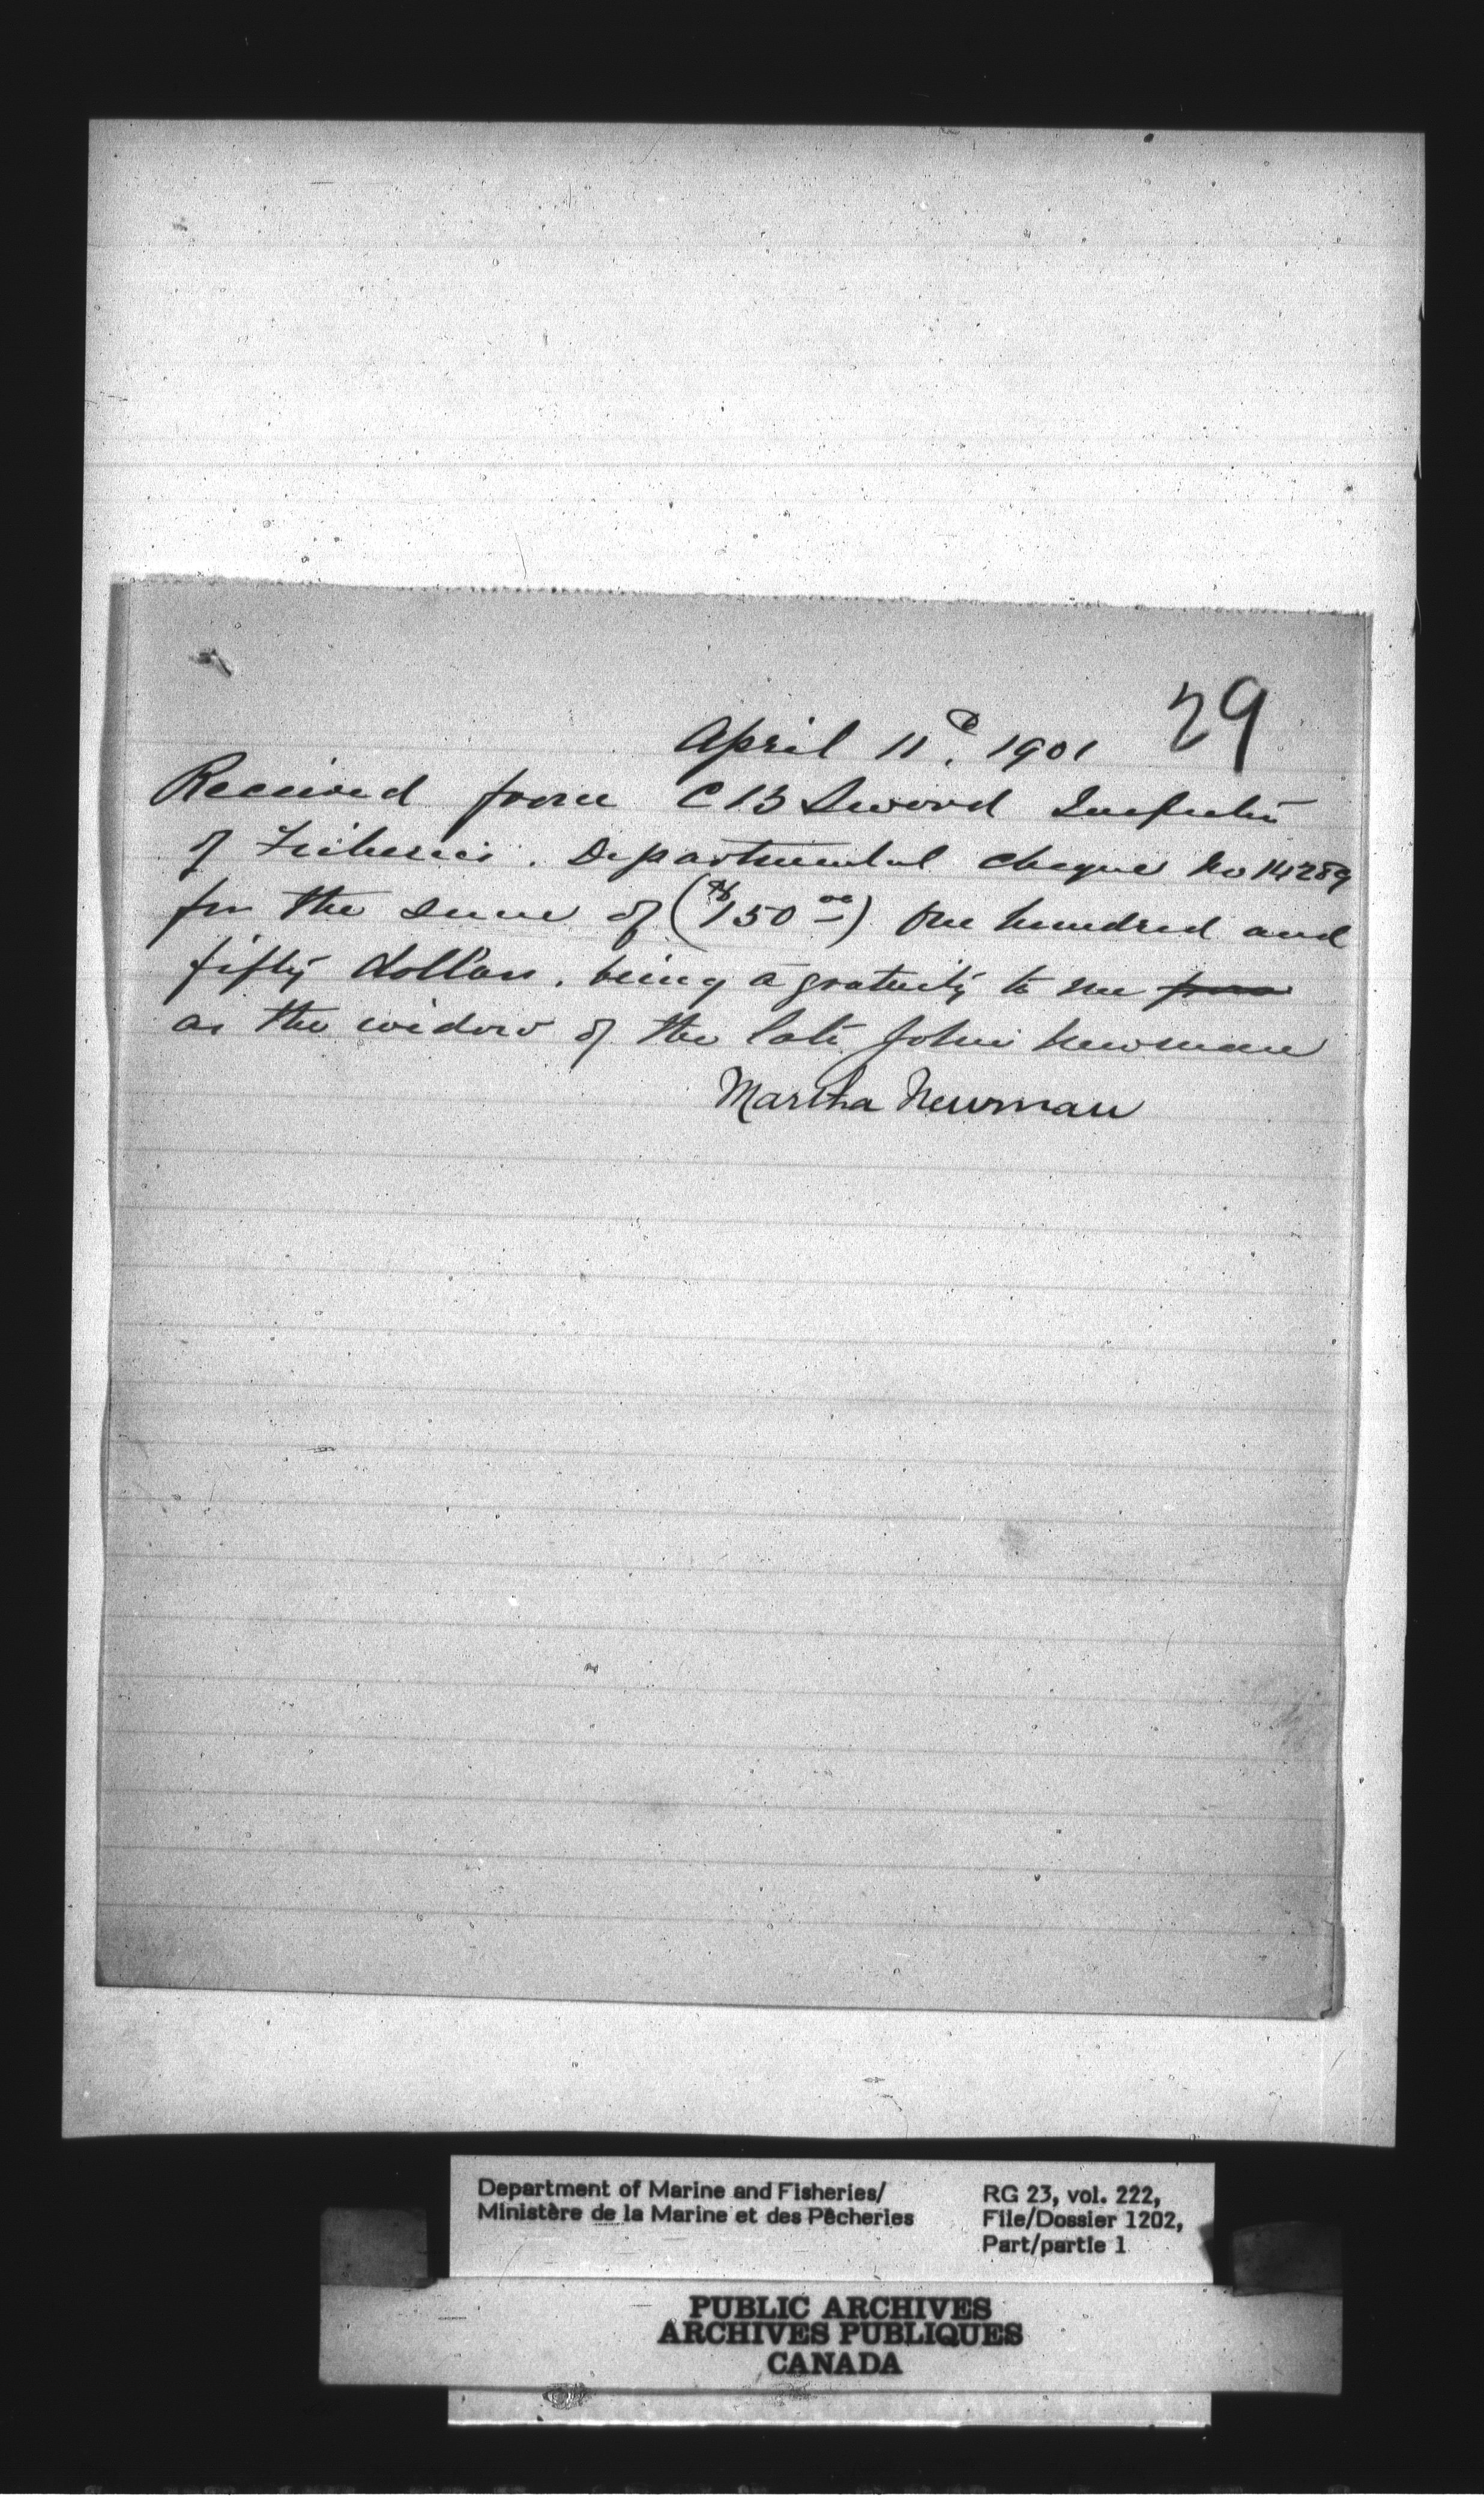 29
April 11th, 1901
Received from C B Sword Inspector
of Fisheries. Departmental cheque No 14289
for the sum of ($150.00) One hundred and
fifty dollars, being a gratuity to me from
as the widow of the late John Newman
Martha Newman
Department of Marine and Fisheries/
Ministère de la Marine et des Pêcheries
RG 23, vol. 222,
File/Dossier 1202,
Part/partie 1
PUBLIC ARCHIVES
ARCHIVES PUBLIQUES
CANADA